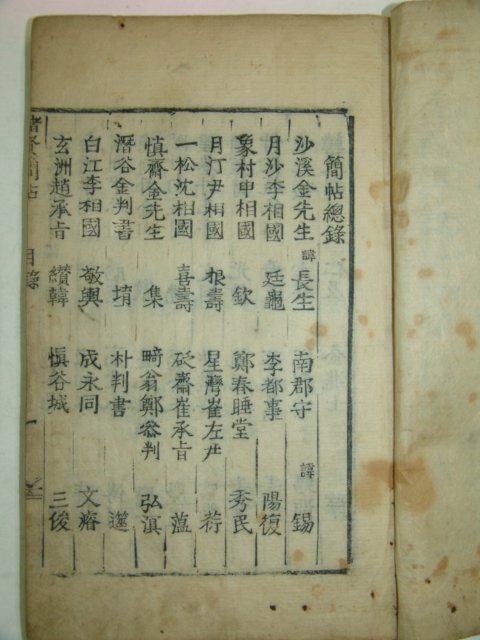 簡帖總錄
沙溪金先生 諱 長生 南郡守 諱 錫
月沙李相國 廷龜 李都事 陽復
象村申相國 欽 鄭春睡堂 秀民
月汀尹相國 根壽 星灣崔左尹 荇
一松沈相國 喜壽 砭齋崔承旨 薀
愼齋金先生 集 畸翁鄭參判 弘溟
潛谷金判書 堉 朴判書 遾
白江李相國 敬輿 成永同 文濬
玄洲趙承旨 纘韓 愼谷城 三俊
諸賢簡帖 目錄 一